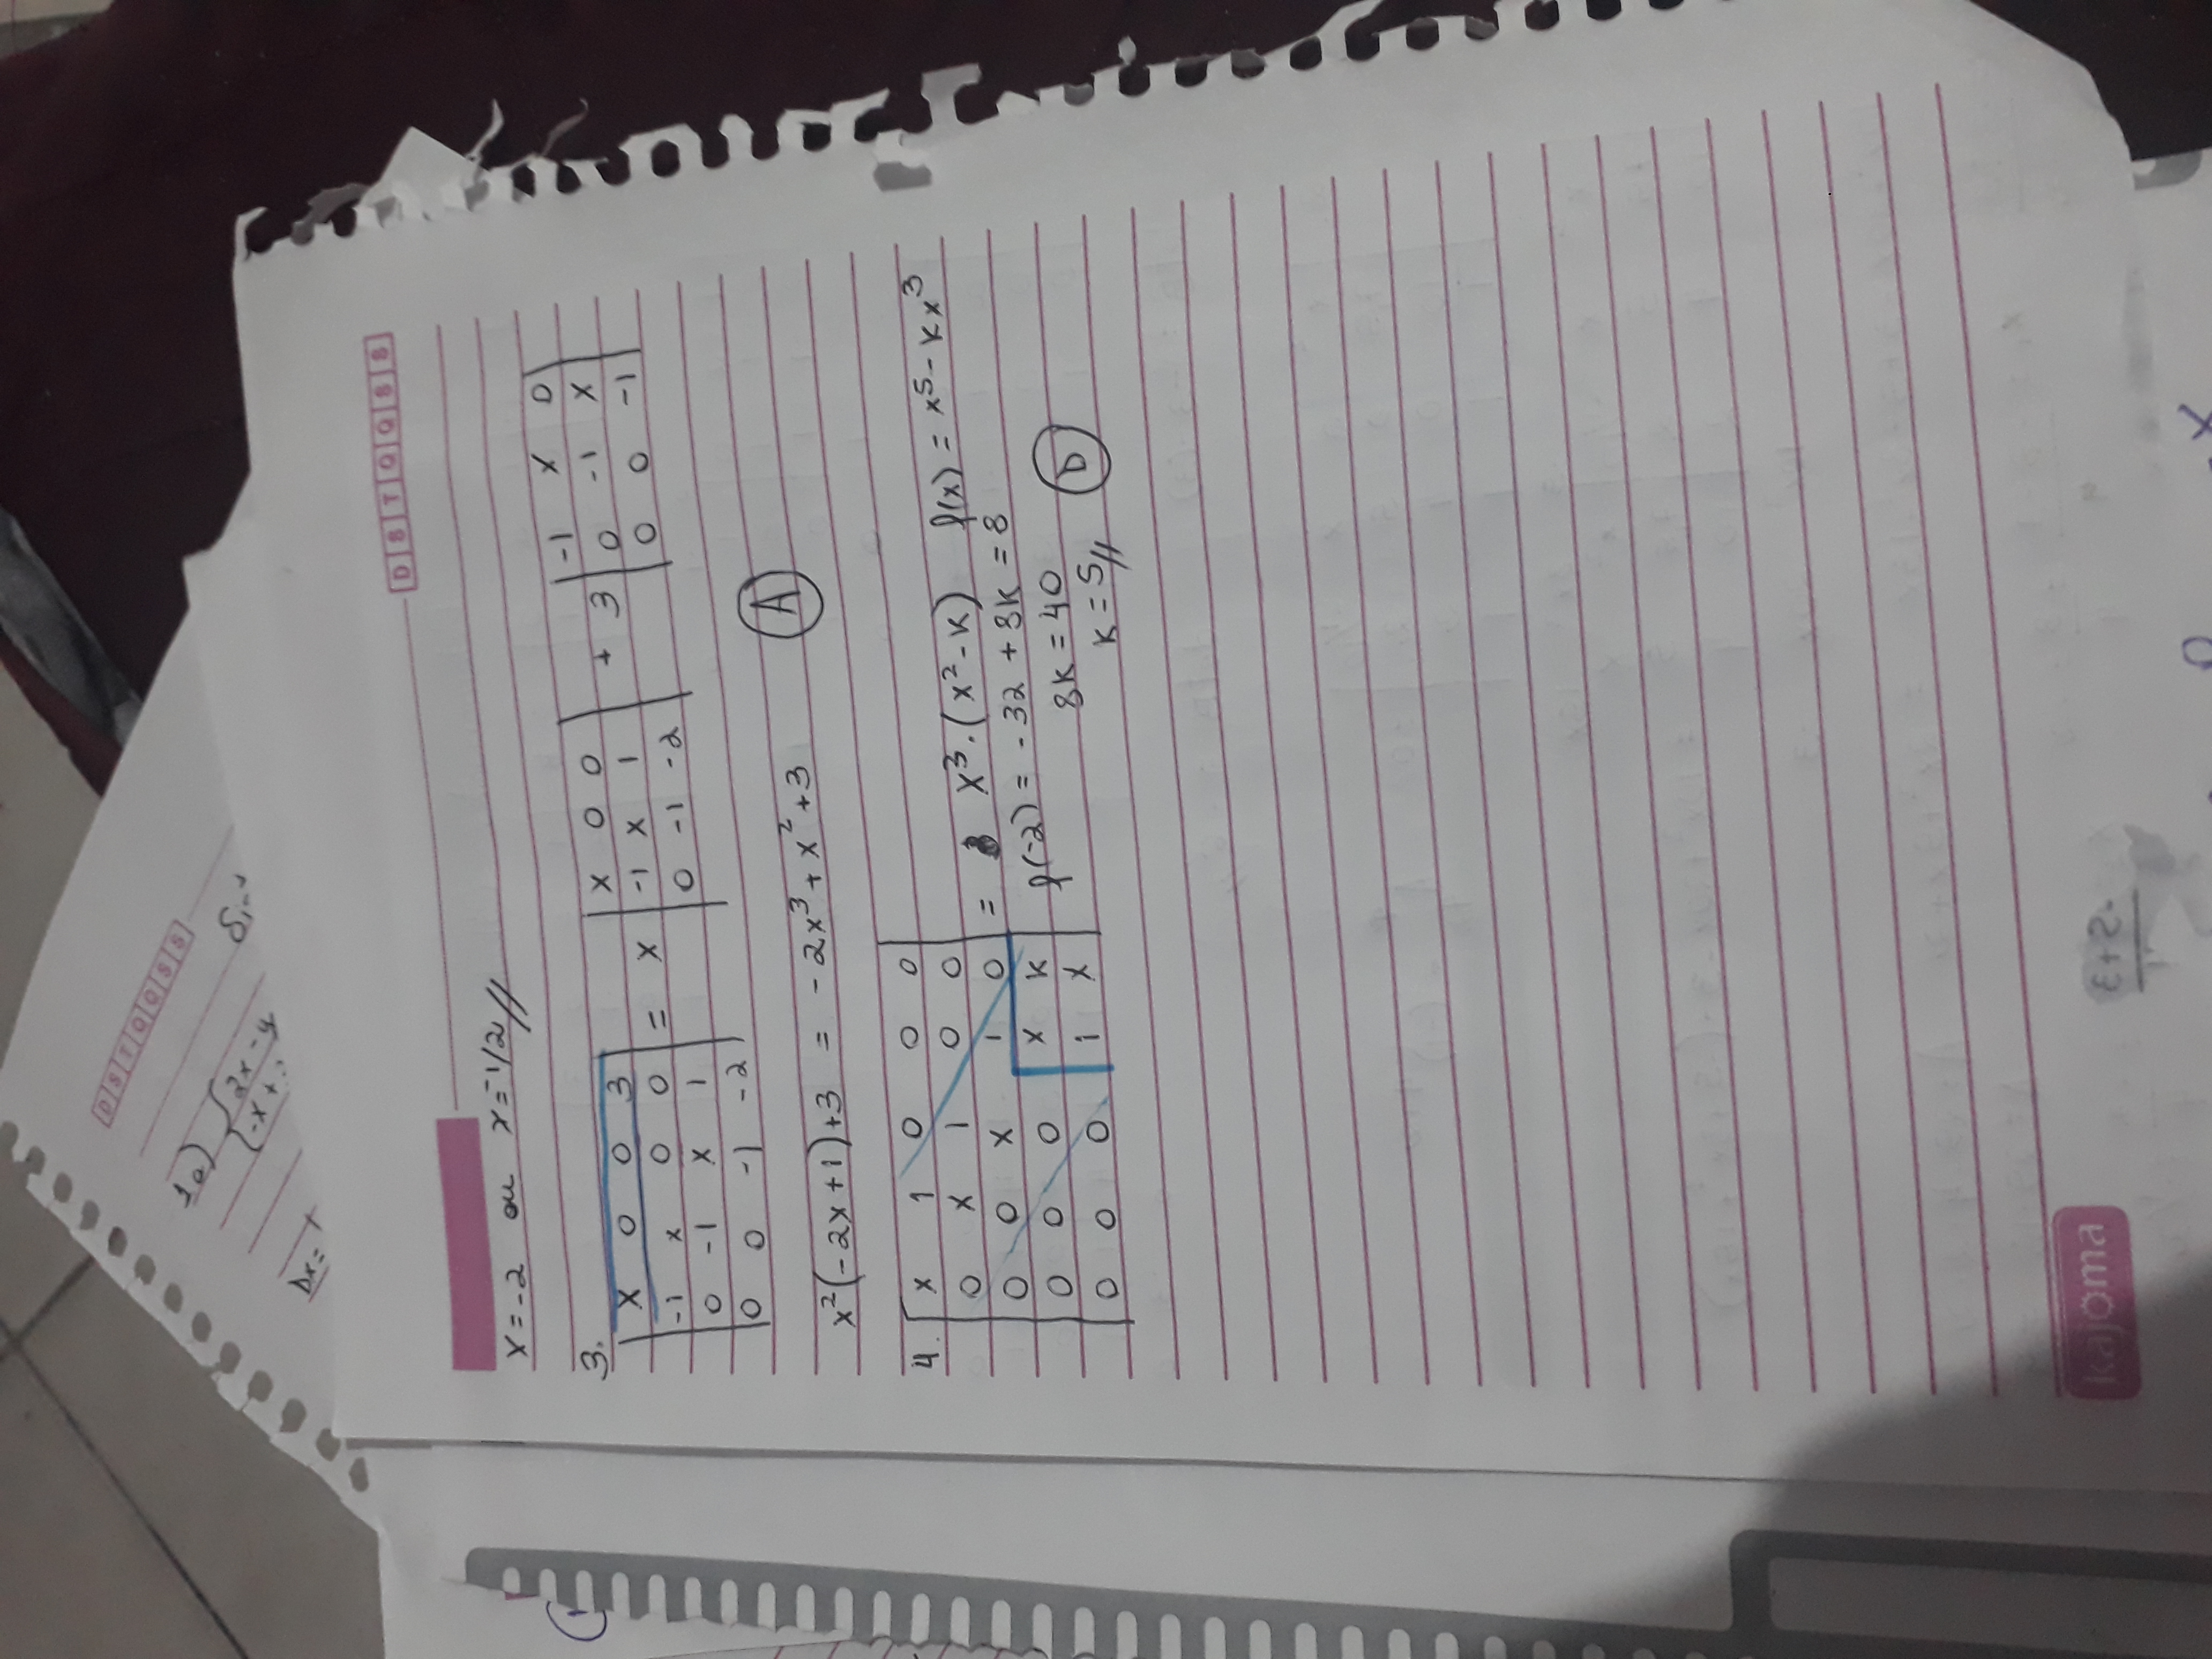 D S T Q Q S S
1a) { 2x - y
-x +
Dx =
D S T Q Q S S
x = -2 ou x = -1/2 //
3.
| x 0 0 3 |
| -1 x 0 0 |
| 0 -1 x 1 |
| 0 0 -1 -2 |
= x
| x 0 0 |
| -1 x 1 |
| 0 -1 -2 |
+ 3
| -1 x 0 |
| 0 -1 x |
| 0 0 -1 |
x²(-2x+1)+3 = -2x³ + x² + 3 A
4.
| x 1 0 0 0 |
| 0 x 1 0 0 |
| 0 0 x 1 0 |
| 0 0 0 x k |
| 0 0 0 1 x |
= x³.(x²-k) f(x) = x⁵ - kx³
f(-2) = -32 + 8k = 8
8k = 40
k = 5 // D
kajoma